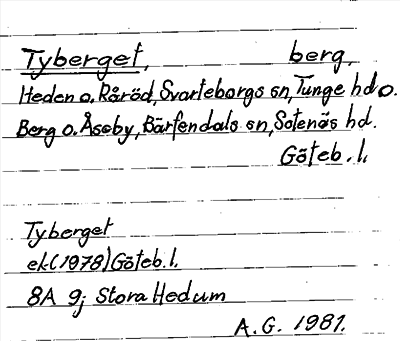 Tyberget, berg,
Heden o. Råröd, Svarteborgs sn, Tunge hd o.
Berg o. Åseby, Bärfendals sn, Sotenäs hd.
Göteb. l.
Tyberget
ek (1978) Göteb. l.
8A 9j Stora Hedum
A. G. 1981.